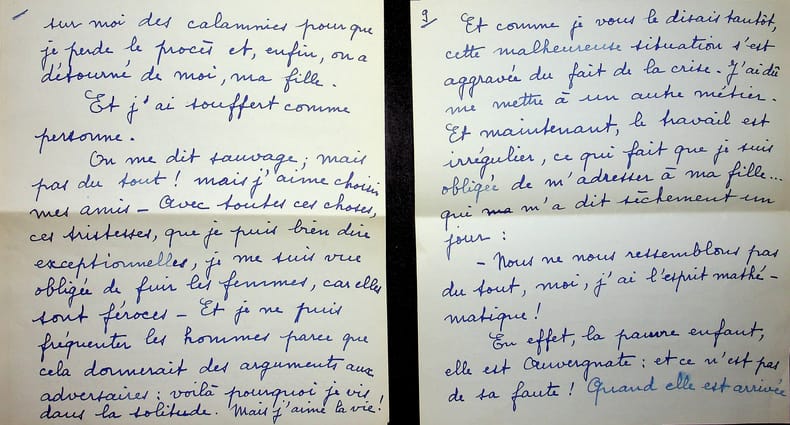 sur moi des calomnies pour que
je perde le procès et, enfin, on a
détourné de moi, ma fille.
Et j'ai souffert comme
personne.
On me dit sauvage ; mais
pas du tout ! mais j'aime choisir
mes amis - Avec toutes ces choses,
ces tristesses, que je puis bien dire
exceptionnelles, je me suis vue
obligée de fuir les femmes, car elles
sont féroces - Et je ne puis
fréquenter les hommes parce que
cela donnerait des arguments aux
adversaires : voilà pourquoi je vis
dans la solitude. Mais j'aime la vie !
9
Et comme je vous le disais tantôt,
cette malheureuse situation s'est
aggravée du fait de la crise. J'ai dû
me mettre à un autre métier.
Et maintenant, le travail est
irrégulier, ce qui fait que je suis
obligée de m'adresser à ma fille...
qui ma m'a dit sèchement un
jour :
- Nous ne nous ressemblons pas
du tout, moi, j'ai l'esprit mathé-
matique !
En effet, la pauvre enfant,
elle est Auvergnate : et ce n'est pas
de sa faute ! Quand elle est arrivée